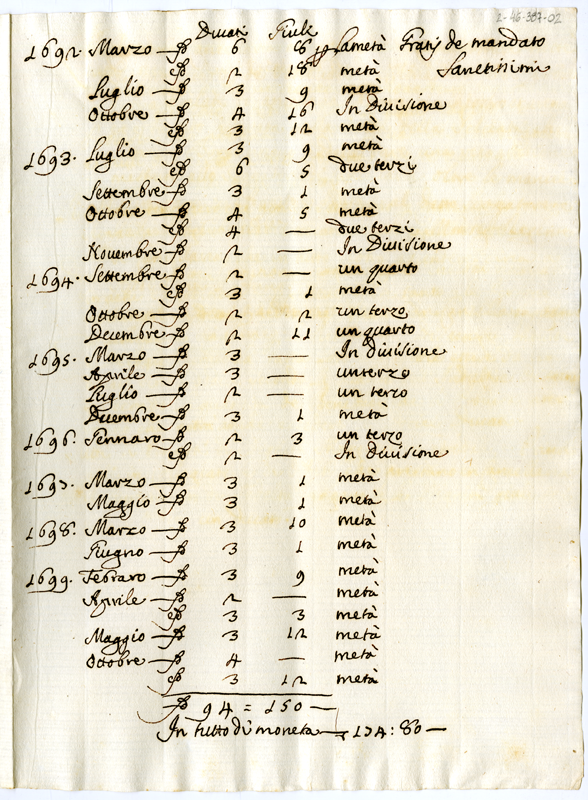 2-46-387-02
Ducati Giulij
1692. Marzo 6 6 la metà Gratis de mandato
2 18 metà Sanctissimi
Luglio 3 9 metà
Ottobre 4 16 In Divisione
ed 3 12 metà
1693. Luglio 3 9 metà
ed 6 5 due terzi
Settembre 3 1 metà
Ottobre 4 5 metà
ed 4 — due terzi
Nouembre 2 — In Diuisione
1694. Settembre 2 — un quarto
ed 3 1 metà
Ottobre 2 2 un terzo
Decembre 2 11 un quarto
1695. Marzo 3 — In diuisione
Aprile 3 — un terzo
Luglio 2 — un terzo
Decembre 3 1 metà
1696. Gennaro 2 3 un terzo
ed 2 — In diuisione
1697. Marzo 3 1 metà
Maggio 3 1 metà
1698. Marzo 3 10 metà
Giugno 3 1 metà
1699. Febraro 3 9 metà
Aprile 2 — metà
ed 3 3 metà
Maggio 3 12 metà
Ottobre 4 — metà
3 12 metà
94 = 150 —
In tutto di moneta 80 —